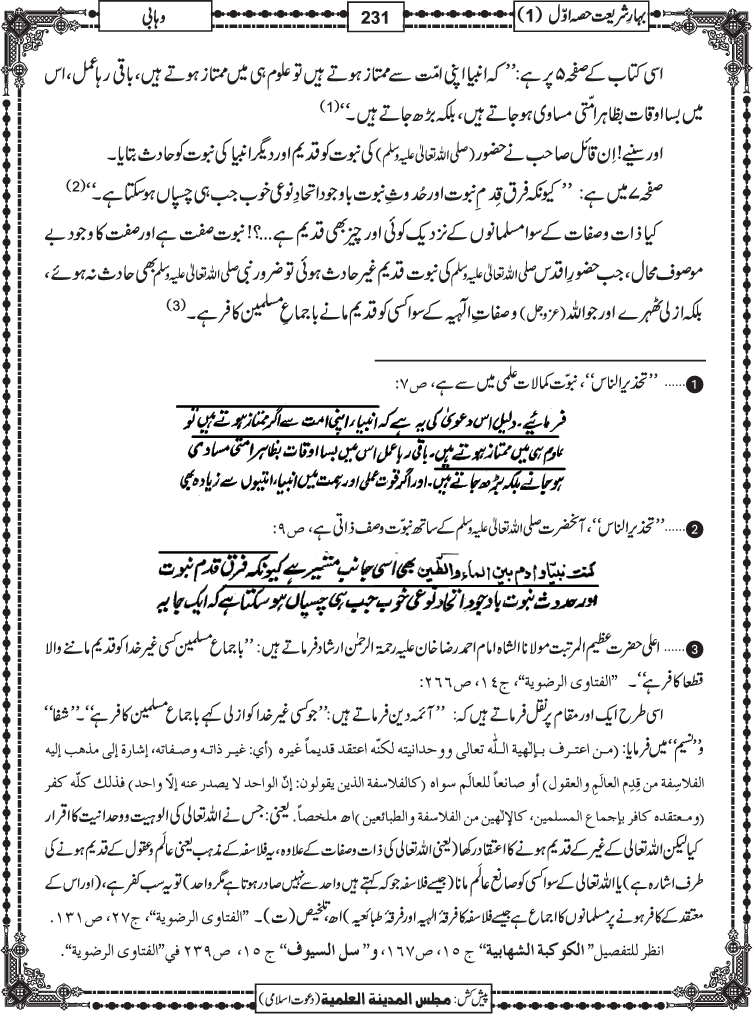 بہار شریعت حصہ اوّل (1)
231
وہابی
اسی کتاب کے صفحہ ۵ پر ہے: ’’ کہ انبیا اپنی امّت سے ممتاز ہوتے ہیں تو علوم ہی میں ممتاز ہوتے ہیں، باقی رہا عمل، اس
میں بسا اوقات بظاہر امّتی مساوی ہو جاتے ہیں، بلکہ بڑھ جاتے ہیں۔‘‘ (1)
اور سنیے! اِن قائل صاحب نے حضور (صلی اللہ تعالیٰ علیہ وسلم) کی نبوت کو قدیم اور دیگر انبیا کی نبوت کو حادث بتایا۔
صفحہ ۷ میں ہے: ’’ کیونکہ فرق قِدمِ نبوت اور حُدوثِ نبوت باوجود اتحادِ نوعی خوب جب ہی چسپاں ہوسکتا ہے۔‘‘ (2)
کیا ذات و صفات کے سوا مسلمانوں کے نزدیک کوئی اور چیز بھی قدیم ہے...؟! نبوت صفت ہے اور صفت کا وجود بے
موصوف محال، جب حضورِ اقدس صلی اللہ تعالیٰ علیہ وسلم کی نبوت قدیم غیر حادث ہوئی تو ضرور نبی صلی اللہ تعالیٰ علیہ وسلم بھی حادث نہ ہوئے،
بلکہ ازلی ٹھہرے اور جو اللہ (عزوجل) و صفاتِ الٰہیہ کے سوا کسی کو قدیم مانے باجماعِ مسلمین کافر ہے۔ (3)
1 ...... ’’تحذیر الناس‘‘، نبوّت کمالات علمی میں سے ہے، ص۷:
فرمائیے۔ دلیل اس دعویٰ کی یہ ہے کہ انبیاء اپنی امت سے اگر ممتاز ہوتے ہیں تو
علوم ہی میں ممتاز ہوتے ہیں۔ باقی رہا عمل اس میں بسا اوقات بظاہر امتی مساوی
ہو جاتے بلکہ بڑھ جاتے ہیں۔ اور اگر قوت عملی اور ہمت میں انبیاء امتیوں سے زیادہ بھی
2 ...... ’’تحذیر الناس‘‘، آنحضرت صلی اللہ تعالیٰ علیہ وسلم کے ساتھ نبوّت وصف ذاتی ہے، ص۹:
کنت نبیا و ادم بین الماء والطین بھی اسی جانب مشیر ہے کیونکہ فرق قدم نبوت
اور حدوث نبوت باوجود اتحاد نوعی خوب جب ہی چسپاں ہو سکتا ہے کہ ایک جا یہ
3 ...... اعلی حضرت عظیم المرتبت مولانا الشاہ امام احمد رضا خان علیہ رحمۃ الرحمٰن ارشاد فرماتے ہیں: ’’باجماع مسلمین کسی غیر خدا کو قدیم ماننے والا
قطعا کافر ہے‘‘۔ ”الفتاوی الرضویة“، ج١٤، ص٢٦٦:
اسی طرح ایک اور مقام پر نقل فرماتے ہیں کہ: ’’آئمہ دین فرماتے ہیں: ’’جو کسی غیر خدا کو ازلی کہے باجماع مسلمین کافر ہے‘‘۔ ’’شفا‘‘
و’’نسیم‘‘ میں فرمایا: (من اعترف بإلٰهية اللّٰه تعالى ووحدانيته لكنّه اعتقد قديماً غيره (أي: غير ذاته وصفاته، إشارة إلى مذهب إليه
الفلاسفة من قِدم العالَم والعقول) أو صانعاً للعالَم سواه (كالفلاسفة الذين يقولون: إنّ الواحد لا يصدر عنه إلّا واحد) فذلك كلّه كفر
(ومعتقده كافر بإجماع المسلمين، كالإلٰهين من الفلاسفة والطبائعين) اھ ملخصاً. یعنی: جس نے اللہ تعالی کی الوہیت و وحدانیت کا اقرار
کیا لیکن اللہ تعالیٰ کے غیر کے قدیم ہونے کا اعتقاد رکھا (یعنی اللہ تعالیٰ کی ذات وصفات کے علاوہ، یہ فلاسفہ کے مذہب یعنی عالَم وعقول کے قدیم ہونے کی
طرف اشارہ ہے) یا اللہ تعالیٰ کے سوا کسی کو صانع عالَم مانا (جیسے فلاسفہ جو کہ کہتے ہیں واحد سے نہیں صادر ہوتا ہے مگر واحد) تو یہ سب کفر ہے، (اور اس کے
معتقد کے کافر ہونے پر مسلمانوں کا اجماع ہے جیسے فلاسفہ کا فرقہ الٰہیہ اور فرقہ طبائعیہ) اھ، تلخیص (ت)۔ ”الفتاوی الرضویة“، ج٢٧، ص١٣١.
انظر للتفصيل ”الكوكبة الشهابية“ ج ١٥، ص١٦٧، و ”سل السيوف“ ج ١٥، ص٢٣٩ في ”الفتاوى الرضوية“.
پیش کش: مجلس المدینۃ العلمیۃ (دعوت اسلامی)